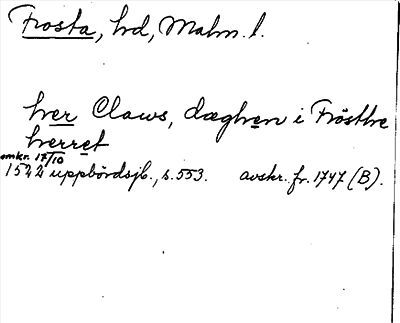 Frosta, hd, Malm. l.
hver Claws, dæghen i Frösthe
herret
omkr. 17/10
1522 uppbördsjb., s. 553. avskr. fr. 1747 (B).